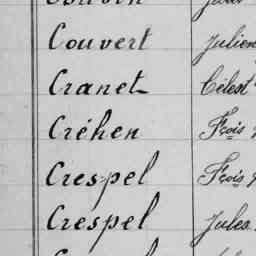 Couvert Julien
Cranet Célest
Créhen Fçois
Crespel Fçois
Crespel Jules